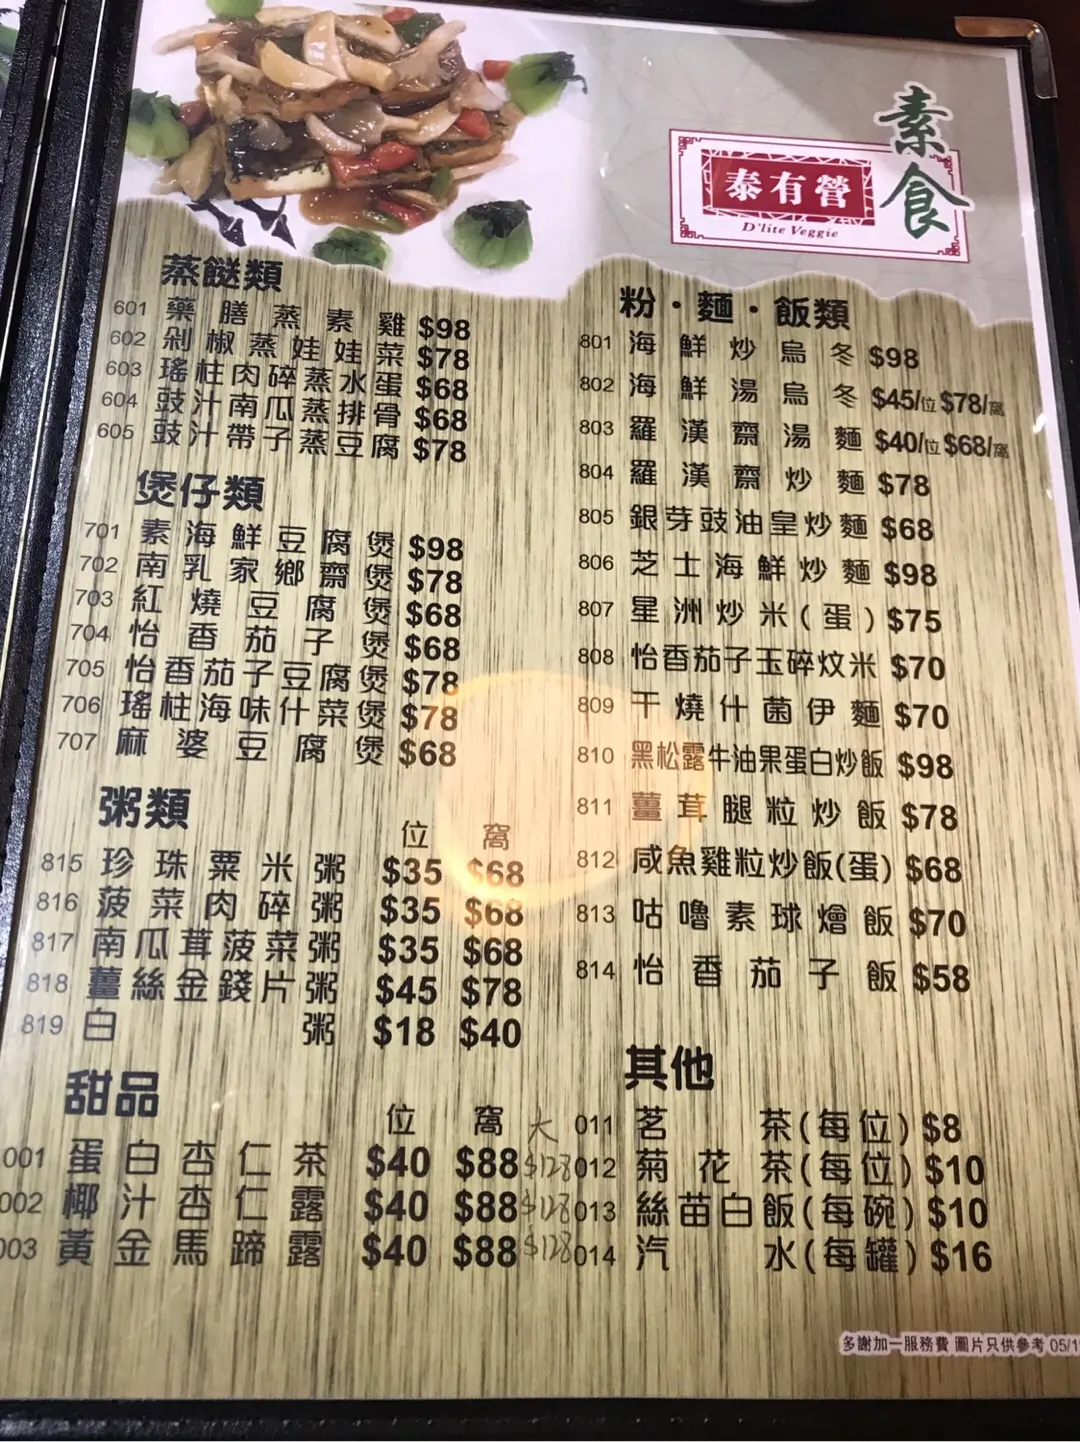 素食
泰有營
D'lite Veggie
蒸餸類
601 藥膳蒸素雞 $98
602 剁椒蒸娃娃菜 $78
603 瑤柱肉碎蒸水蛋 $68
604 豉汁南瓜蒸排骨 $68
605 豉汁帶子蒸豆腐 $78
煲仔類
701 素海鮮豆腐煲 $98
702 南乳家鄉齋煲 $78
703 紅燒豆腐煲 $68
704 怡香茄子煲 $68
705 怡香茄子豆腐煲 $78
706 瑤柱海味什菜煲 $78
707 麻婆豆腐煲 $68
粥類
位 窩
815 珍珠粟米粥 $35 $68
816 菠菜肉碎粥 $35 $68
817 南瓜茸菠菜粥 $35 $68
818 薑絲金錢片粥 $45 $78
819 白粥 $18 $40
甜品
位 窩 大
001 蛋白杏仁茶 $40 $88 $128
002 椰汁杏仁露 $40 $88 $128
003 黃金馬蹄露 $40 $88 $128
粉・麵・飯類
801 海鮮炒烏冬 $98
802 海鮮湯烏冬 $45/位 $78/窩
803 羅漢齋湯麵 $40/位 $68/窩
804 羅漢齋炒麵 $78
805 銀芽豉油皇炒麵 $68
806 芝士海鮮炒麵 $98
807 星洲炒米(蛋) $75
808 怡香茄子玉碎炆米 $70
809 干燒什菌伊麵 $70
810 黑松露牛油果蛋白炒飯 $98
811 薑茸腿粒炒飯 $78
812 咸魚雞粒炒飯(蛋) $68
813 咕嚕素球燴飯 $70
814 怡香茄子飯 $58
其他
011 茗茶(每位) $8
012 菊花茶(每位) $10
013 絲苗白飯(每碗) $10
014 汽水(每罐) $16
多謝加一服務費 圖片只供參考 05/1